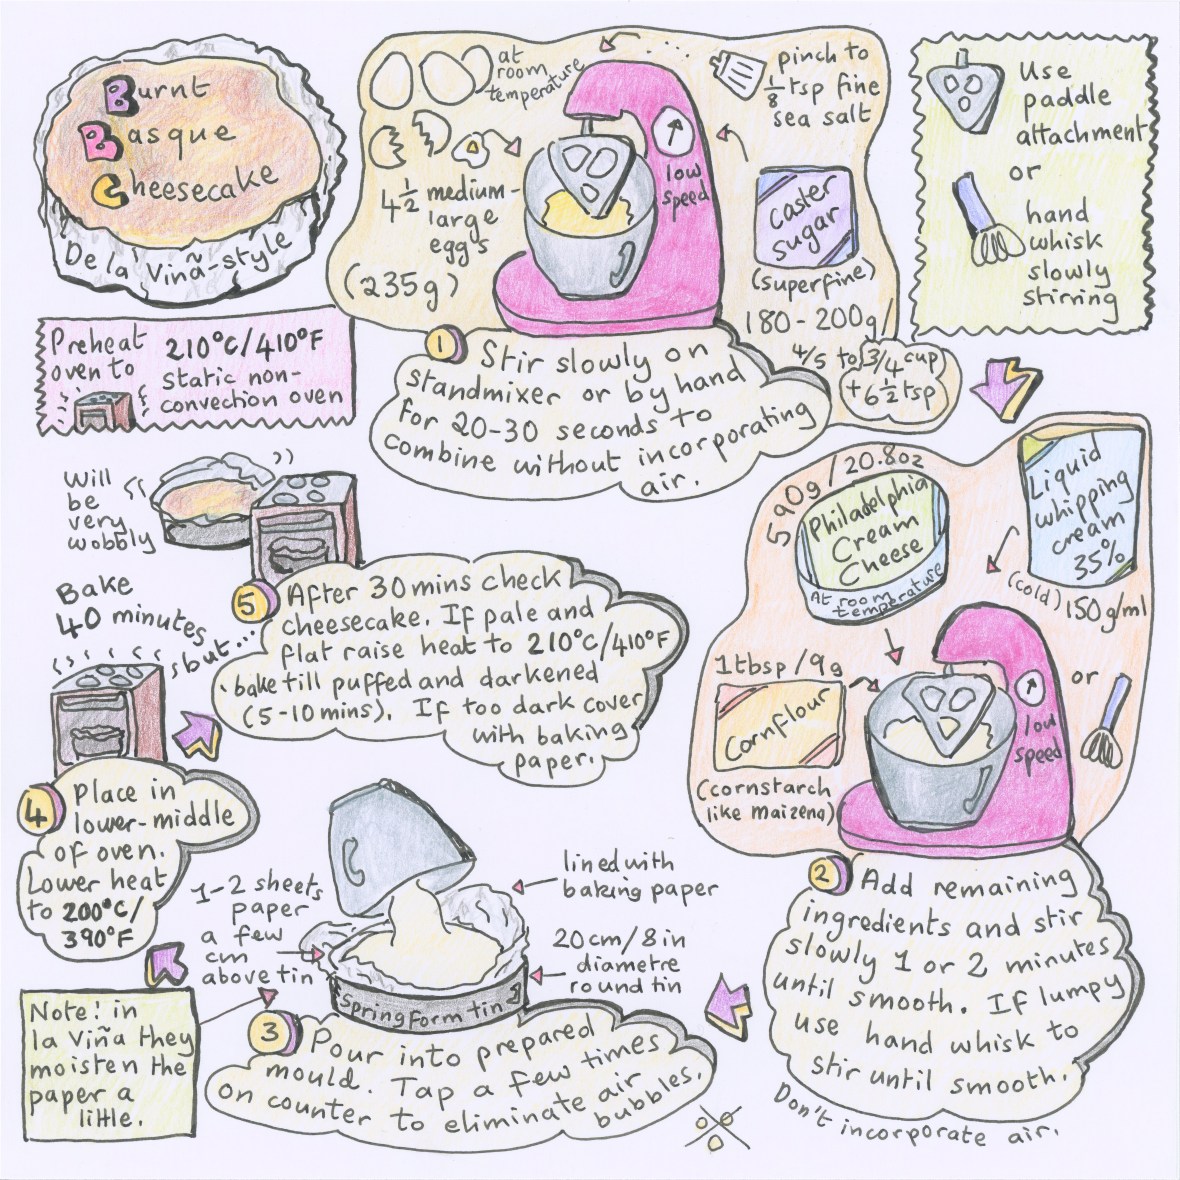 Burnt
Basque
Cheesecake
De la Viñã-style
Preheat
oven to
210°C/410°F
static non-
convection oven
at
room
temperature
4 1/2 medium-
large
eggs
(235g)
low
speed
pinch to
1/8 tsp fine
sea salt
caster
sugar
(superfine)
180-200g/
4/5 to 3/4 cup
+6 1/2 tsp
Use
paddle
attachment
or
hand
whisk
slowly
stirring
1 Stir slowly on
standmixer or by hand
for 20-30 seconds to
combine without incorporating
air.
590g/20.8oz
Philadelphia
Cream
Cheese
At room
temperature
Liquid
whipping
cream
35%
(cold) 150g/ml
1tbsp/9g
Cornflour
(cornstarch
like maizena)
low
speed
or
2 Add remaining
ingredients and stir
slowly 1 or 2 minutes
until smooth. If lumpy
use hand whisk to
stir until smooth.
Don't incorporate air.
lined with
baking paper
20cm/8in
diametre
round tin
1-2 sheets
paper
a few
cm
above tin
Springform tin
3 Pour into prepared
mould. Tap a few times
on counter to eliminate air
bubbles.
Note! in
la Viña they
moisten the
paper a
little.
4 Place in
lower-middle
of oven.
Lower heat
to 200°C/
390°F
Bake
40 minutes,
but...
Will
be
very
wobbly
5 After 30mins check
cheesecake. If pale and
flat raise heat to 210°C/410°F
bake till puffed and darkened
(5-10mins). If too dark cover
with baking
paper.